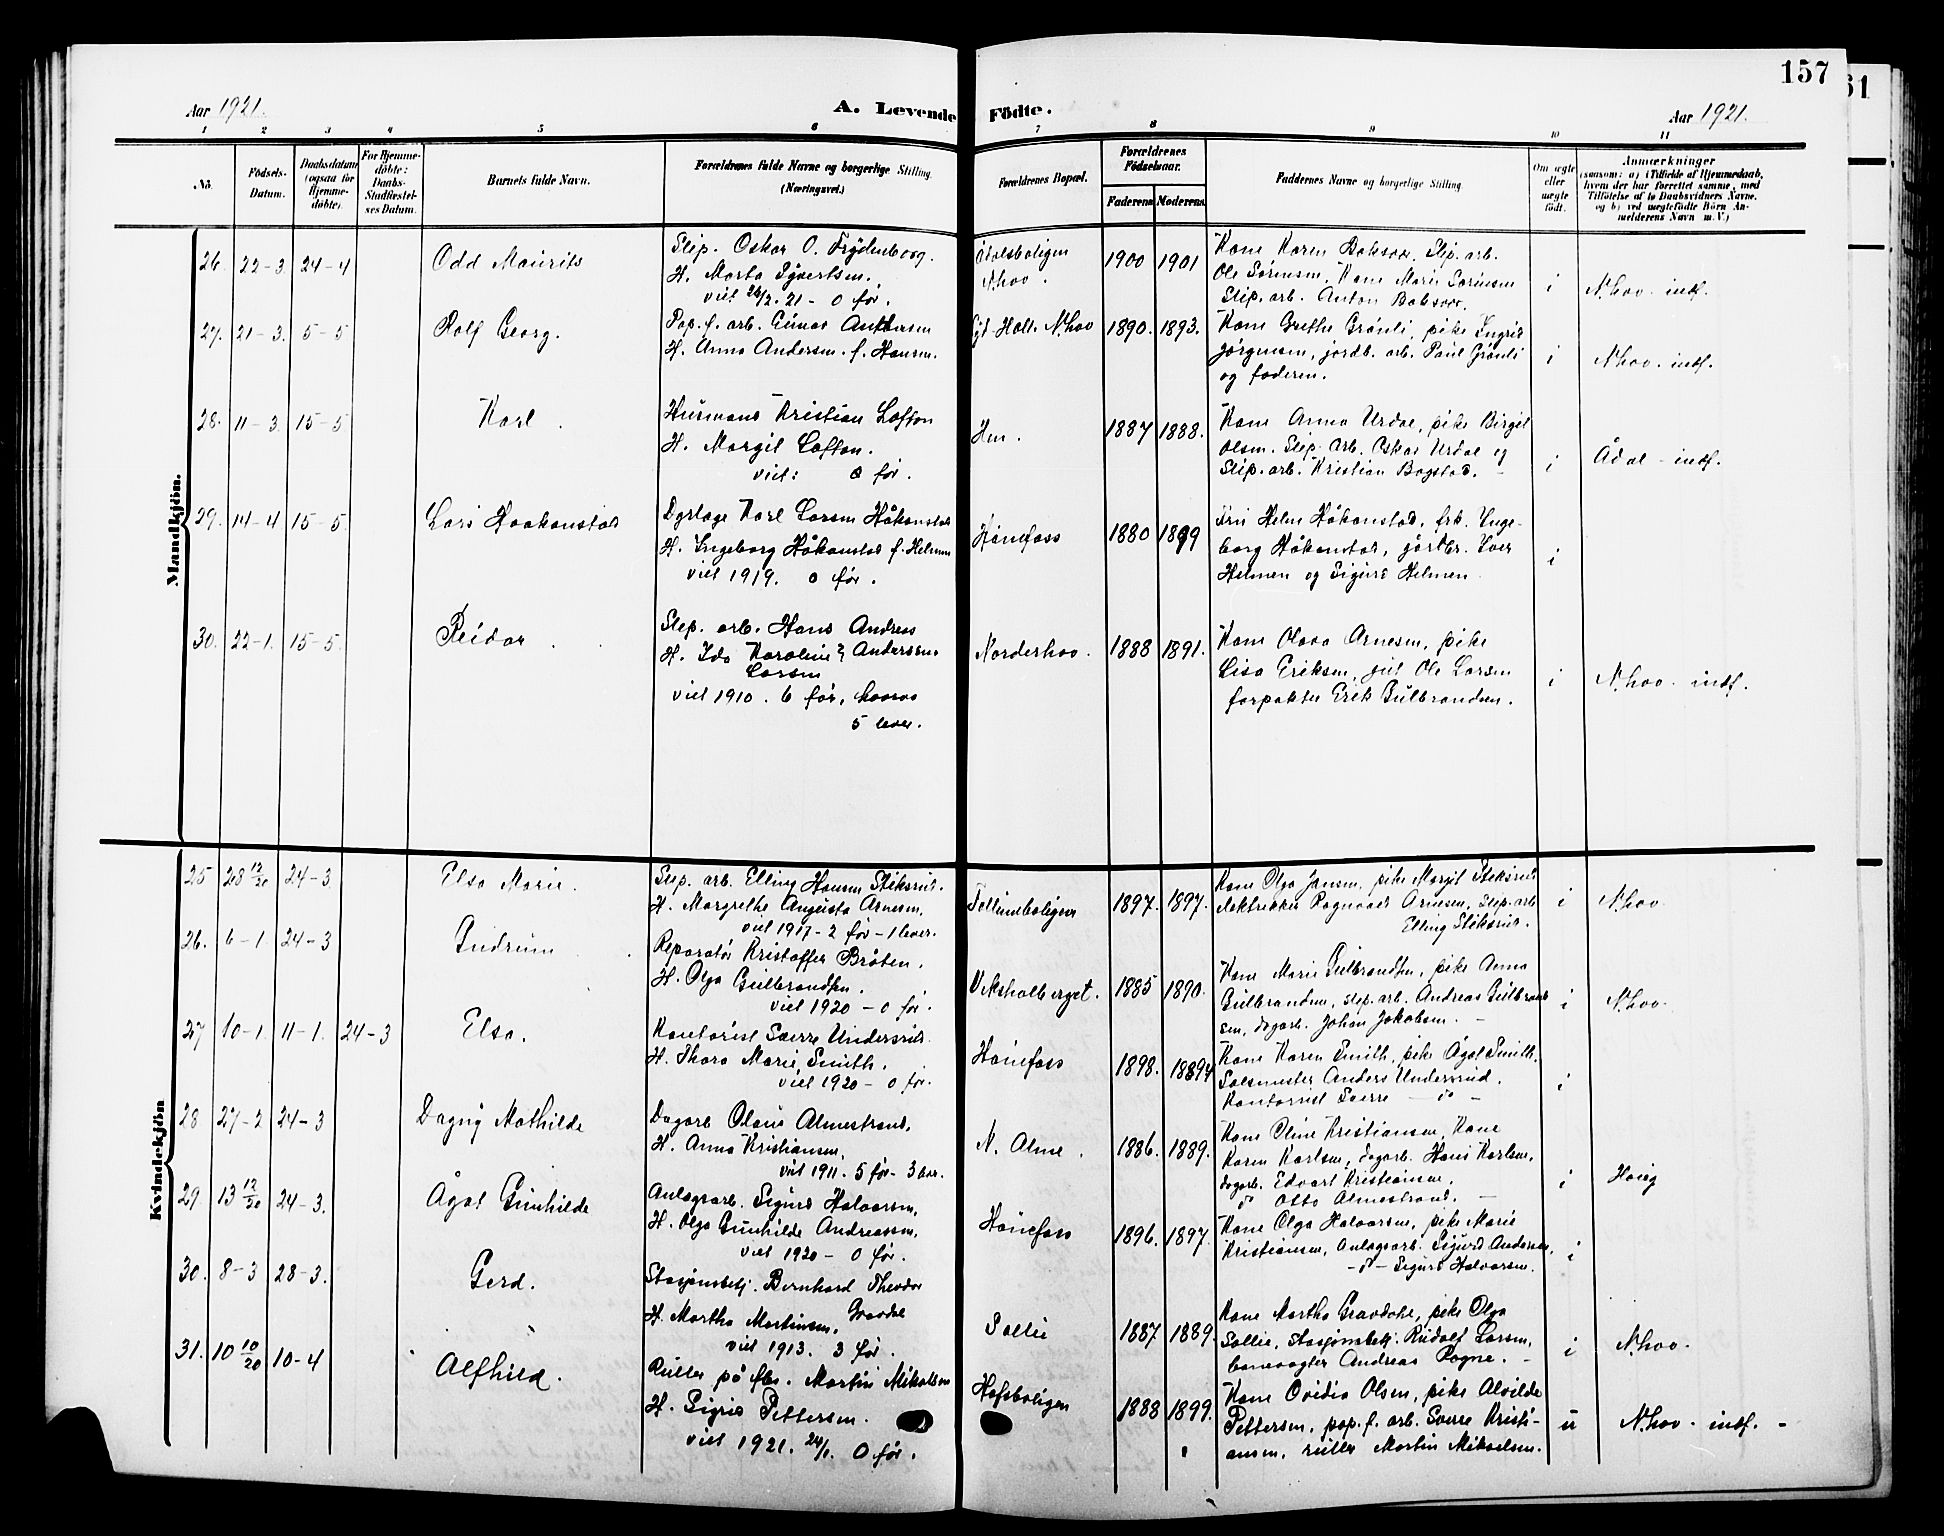 157
Aar 1921.
A. Levende Födte.
Aar 1921.
1 2 3 4 5 6 7 8 9 10 11
No.
Födsels-Datum.
Daabsdatum (ogsaa for Hjemme-döbte).
For Hjemme-döbte: Daabs-Stadfæstel-ses Datum.
Barnets fulde Navn.
Forældrenes fulde Navne og borgerlige Stilling. (Næringsvei.)
Forældrenes Bopæl.
Forældrenes Födselsaar.
Faderens Moderens
Faddernes Navne og borgerlige Stilling.
Om ægte eller uægte födt.
Anmærkninger
(saasom: a) i Tilfælde af Hjemmedaab, hvem der har forrettet samme, med Tilföielse af to Daabsvidners Navne, og b) ved uægtefödte Börn An-melderens Navn m. V.)
Mandkjön.
26. 22-3. 24-4 Odd Maurits
Slip. Oskar O. Frydenborg.
H. Marta Syvertsen.
viet 26/2. 21 - 0 før.
Nhov. 1900 1901
Kone Karen Baksvær, Slip. arb.
Ole Sørensen, Kone Marie Sørensen
Slip. arb. Anton Baksvær.
i N.hov. indf.
27. 21-3. 5-5 Rolf Georg.
Pap. f. arb. Einar Andersen
H. Anna Andersen. f. Hansen.
Nhov 1890. 1893.
Kone Grethe Grønli, pike Ingrid
Jørgensen, jordb. arb. Paul Grønli
og faderen.
i N.hov. indf.
28. 11-3. 15-5 Karl.
Kristian Lofton
H. Margit Lofton.
viet: 0 før.
Hen. 1887 1888.
Kone Anna Urdal, pike Birgit
Olsen. Slip. arb. Oskar Urdal og
Slip. arb. Kristian Bagstad.
i Ådal - indf.
29. 14-4 15-5. Lars Haakonstad
Dyrlæge Karl Larsen Håkonstad
H. Ingeborg Håkonstad f. Helmen
viet 1919. 0 før.
Hønefoss 1880 1899
Fru Helen Håkonstad, frk. Inge-
borg Håkonstad, gårdbr. Iver
Helmen og Sigurd Helmen.
i
30. 22-1. 15-5. Reidar.
Slip. arb. Hans Andreas
H. Ida Karoline Anderssen
Larsen
viet 1910. 6 før, hvorav
5 lever.
Norderhov. 1888 1891.
Kone Olava Arnesen, pike
Lisa Eriksen, gut Ole Larsen
forpakter Erik Gulbrandsen.
i N.hov. indf.
Kvindekjön
25 28 12/20 24-3. Elsa Marie.
Slip. arb. Elling Hansen Stiksrud.
H. Margrethe Augusta Arnesen.
viet 1917 - 2 før - 1 lever.
Follumboligen 1897. 1897.
Kone Olga Jansen, pike Margit Stiksrud
elektriker Ragnvald Arnesen, Slip. arb.
Elling Stiksrud.
i N.hov.
26. 6-1. 24-3 Gudrun
Reparatør Kristoffer Bråten.
H. Olga Gulbrandsen.
viet 1920 - 0 før.
Vekshalberget. 1885 1890.
Kone Marie Gulbrandsen, pike Anna
Gulbrandsen, slip. arb. Andreas Gulbrand
sen, dagarb. Johan Jakobsen.
i N.hov.
27 10-1. 11-1. 24-3 Elsa.
Kontorist Sverre Undersrud.
H. Thora Marie Smith.
viet 1920 - 0 før.
Hønefoss 1898. 1894
Kone Karen Smith, pike Ågot Smith.
Salsmester Anders Undersrud.
Kontorist Sverre - do -
i
28 27-2 24-3 Dagny Mathilde
Dagarb Olaus Almestrand.
H. Anna Kristiansen.
viet 1911. 5 før - 3 lever.
N. Alme. 1886. 1889.
Kone Oline Kristiansen, Kone
Karen Karlsen, dagarb. Hans Karlsen,
dagarb. Edvart Kristiansen.
do Otto Almestrand.
i Haug
29 13 12/20 24-3. Ågot Gunhilde
Anlagsarb. Sigurd Halvorsen,
H. Olga Gunhilde Andreassen.
viet 1920 - 0 før.
Hønefoss 1896. 1897.
Kone Olga Halvorsen, pike Marie
Kristiansen, Anlagsarb. Sigurd Andersen,
- do - Sigurd Halvorsen.
i
30. 8-3 28-3. Gerd.
Stasjonsbetj. Bernhard Theodor
Gravdal
H. Martha Martinsen.
viet 1913. 3 før.
Sollie 1887 1889.
Kone Martha Gravdahl, pike Olga
Sollie, Stasjonsbetj. Rudolf Larsen,
banevogter Andreas Rogne.
i N.hov.
31. 10 10/20 10-4 Alfhild.
Ruller på fbr. Martin Mikalsen
H. Sigrid Pettersen.
viet 1921. 24/1. 0 før.
Hofsboligen 1888 1899.
Kone Ovidia Olsen, pike Alvilde
Pettersen, pap. f. arb. Sverre Kristi-
ansen, ruller Martin Mikaelsen.
u N.hov. indf. -